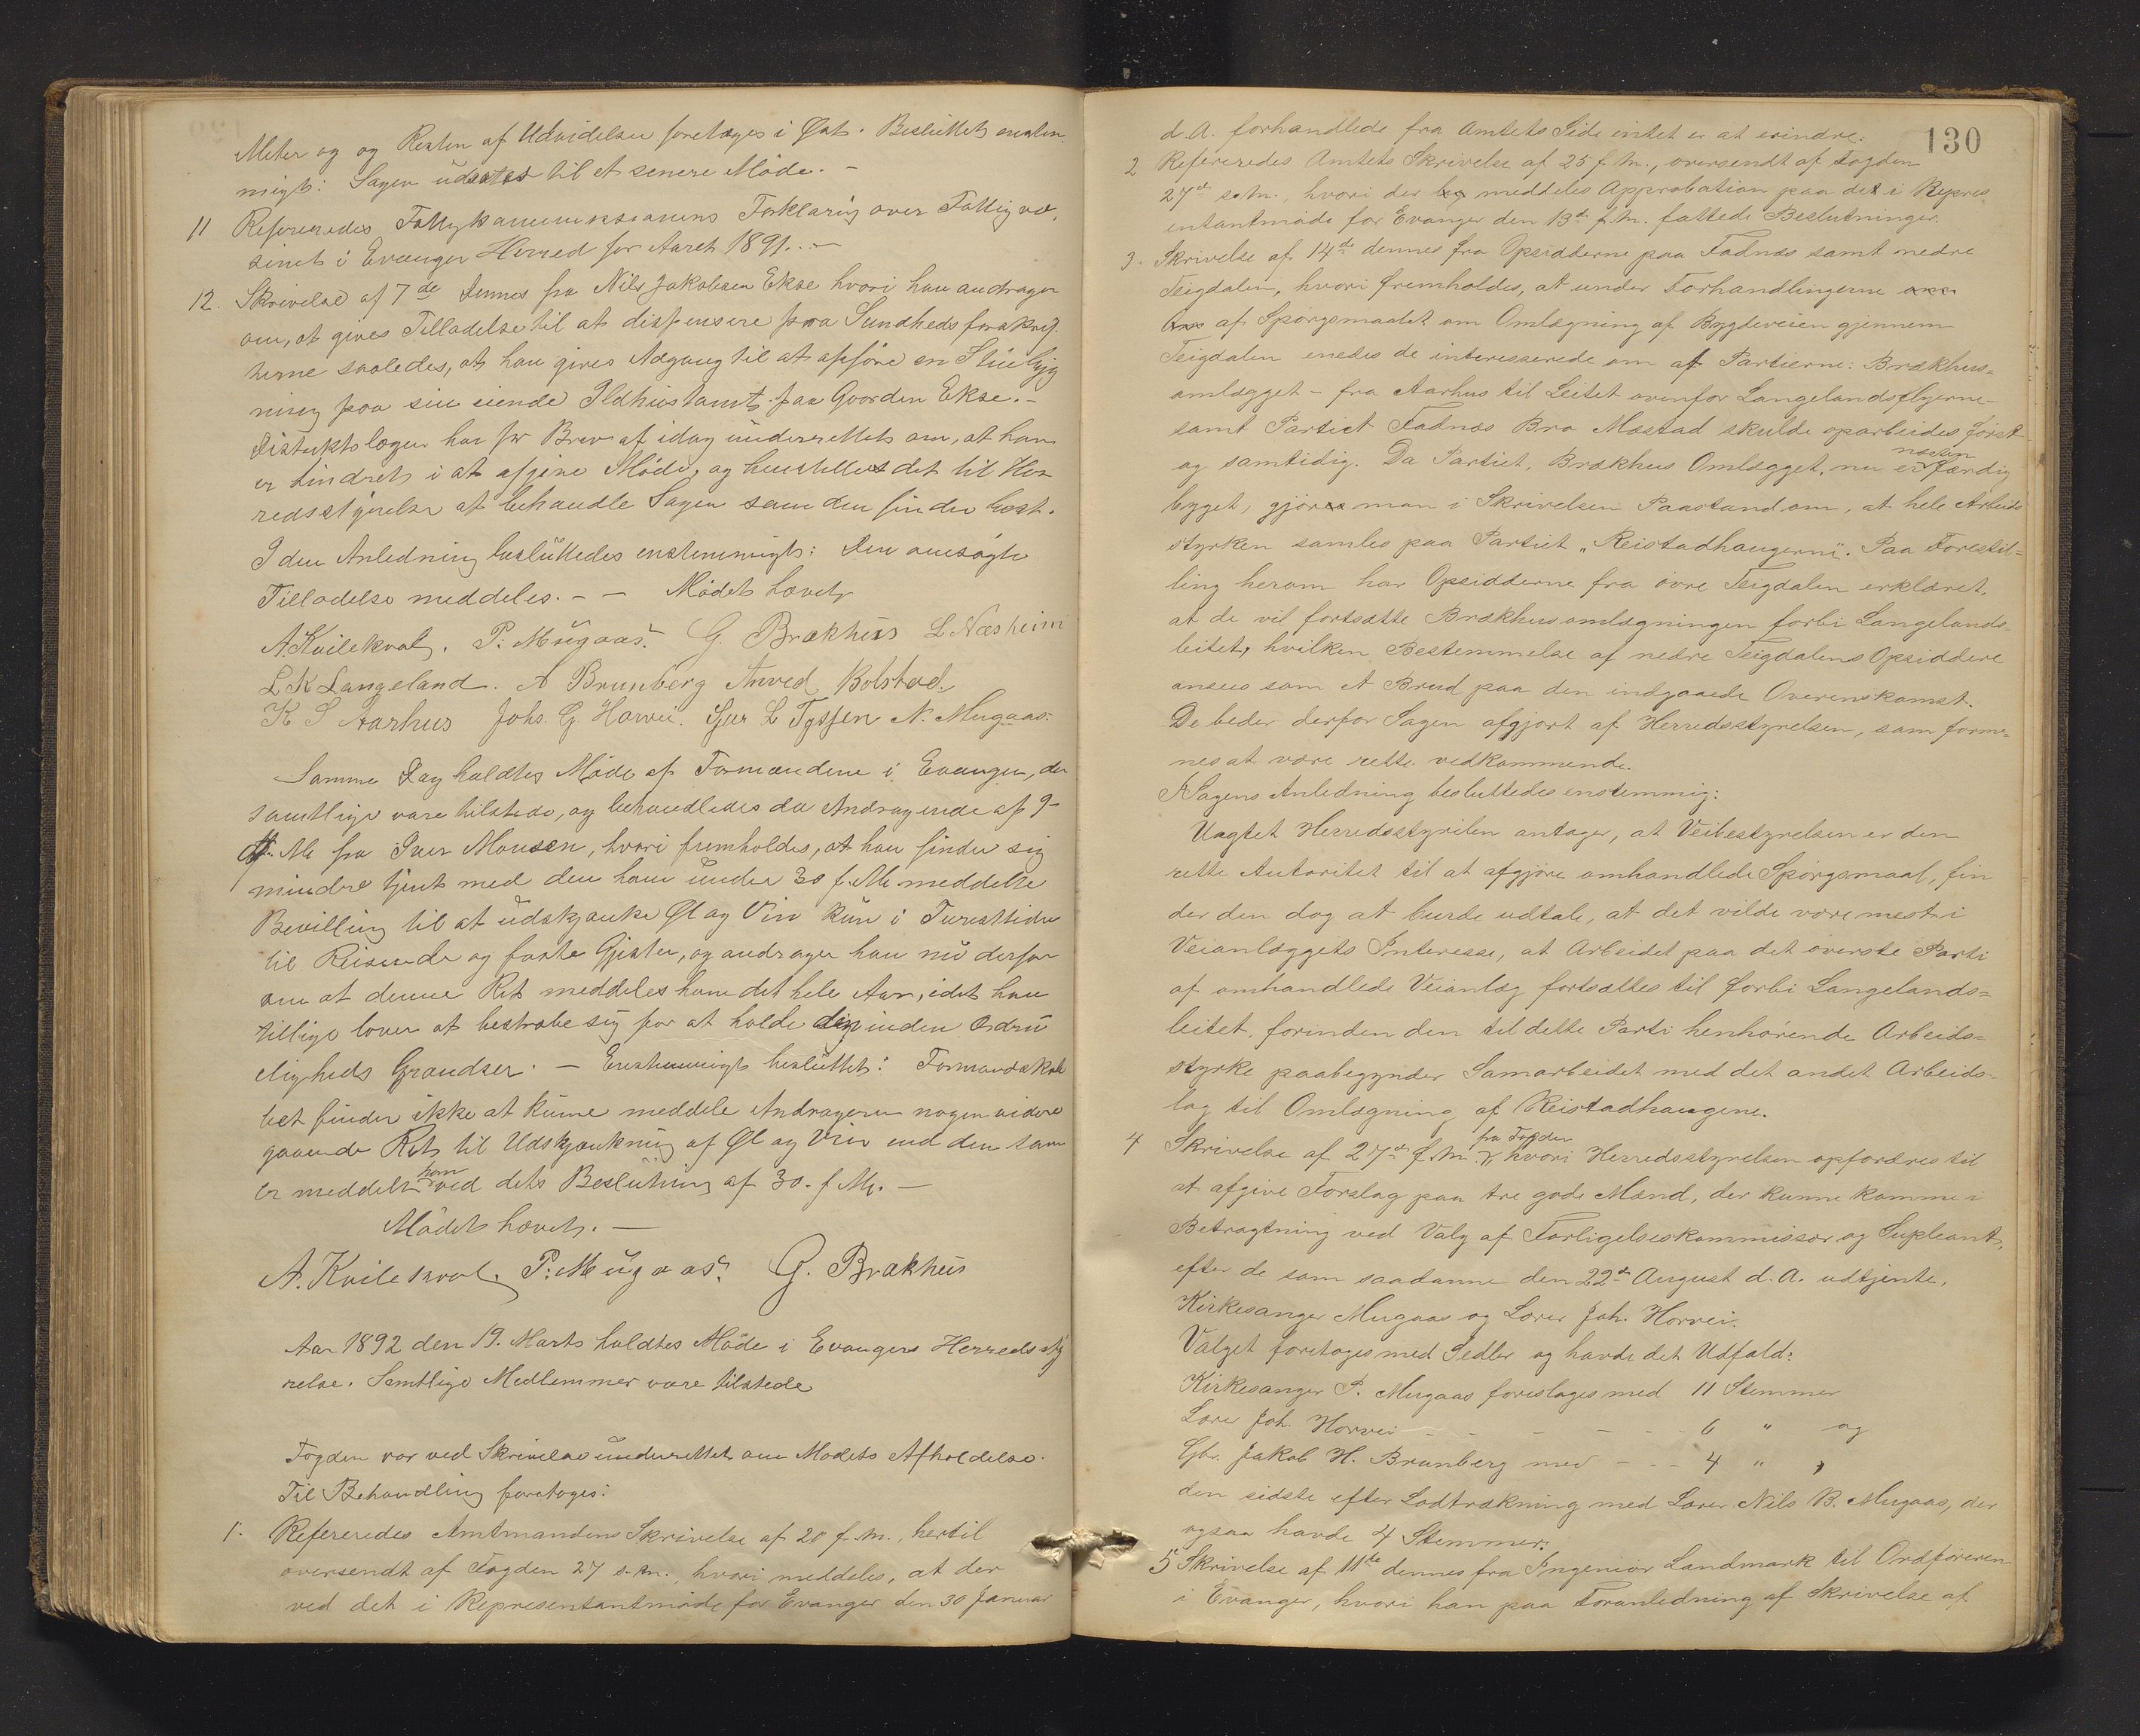 Meter og og Resten af Udvidelsen foretages i Øst. Besluttet enstem
migt: Sagen udsættes til et senere Møde. –
11 Refereredes Fattigkommissionens Forklaring over Fattigvæ,
senet i Evanger Herred for Aaret 1891. –
12. Skrivelse af 7de dennes fra Nils Jakobsen Ekse hvori han andrager
om, at gives Tilladelse til at dispensere fra Sundhedsforskrif
terne saaledes, at han gives Adgang til at opføre en Stuebyg
ning paa sin eiende Ildhustomt paa Gaarden Ekse. –
Distriktslægen har pr Brev af idag underrettet om, at han
er hindret i at afgive Møde, og henstilles det til Her
redsstyrelse at behandle Sagen som den finder bedst.
I den Anledning besluttedes enstemmigt: Den ansøgte
Tilladelse meddeles. – – Mødet hævet
A. Kvilekval. P. Mügaas. G. Brækhus L Næsheim
L K Langeland. A Brunborg Anved Bolstad.
K S Aarhus Johs. G Horvei. Gur L Tyssen N. Mugaas.
Samme Dag holdtes Møde af Formændene i Evanger, der
samtlige vare tilstede, og behandledes da Andragende af 9–
d. M fra Iver Monsen, hvori fremholdes, at han finder sig
mindre tjent med den ham under 30 f. M. meddelte
Bevilling til at udskjænke Øl og Vin kun i Turisttiden
til Reisende og faste Gjester, og andrager han nu derfor
om at denne Ret meddeles ham det hele Aar, idet han
tillige lover at bestræbe sig for at holde sig inden Ædru
elighets Grændser. – Enstemmigt besluttet: Formandskab
bet finder ikke at kunne meddele Andrageren nogen videre
gaaende Ret til Udskjænkning af Øl og Vin end den som
er meddelt ham ved dets Beslutning af 30. f M. –
Mødet hævet. –
A. Kvilekval. P. Mügaas. G. Brækhüs
Aar 1892 den 19. Marts holdtes Møde i Evangers Herredssty
relse. Samtlige Medlemmer vare tilstede
Fogden var ved Skrivelse underrettet om Mødets Afholdelse.
Til Behandling foretoges:
1. Refereredes Amtmandens Skrivelse af 20 f. M., hertil
oversendt af Fogden 27 s. M., hvori meddeles, at der
ved det i Representantmøde for Evanger den 30 Januar
130
d. A. forhandlede fra Amtets Side intet er at erindre.
2 Refereredes Amtets Skrivelse af 25 f. M., oversendt af Fogden
27de s. M., hvori der meddeles Approbation paa det i Repres
entantmøde for Evanger den 13de f. M. fattede Beslutninger.
3. Skrivelse af 14de dennes fra Opsidderne paa Fadnæs samt nedre
Teigdalen, hvori fremholdes, at under Forhandlingerne
af Spørgsmaalet om Omlægning af Bygdeveien gjennem
Teigdalen enedes de interesserede om at Partierne: Brækhus-
omlægget – fra Aarhus til Leitet ovenfor Langelandsflyerne –
samt Partiet Fadnæs Bro Mæstad skulde oparbeides først
og samtidig. Da Partiet, Brækhus Omlægget, nu er næsten færdig
bygget, gjør man i Skrivelsen Paastand om, at hele Arbeids
styrken samles paa Partiet „Reistadhaugerne". Paa Forestil-
ling herom har Opsidderne fra øvre Teigdalen erklæret,
at de vil fortsætte Brækhusomlægningen forbi Langelands-
leitet, hvilken Bestemmelse af nedre Teigdalens Opsiddere
ansees som et Brud paa den indgaaede Overenskomst.
De beder derfor Sagen afgjort af Herredsstyrelsen, som forme-
nes at være rette vedkommende.
I Sagens Anledning besluttedes enstemmig:
Uagtet Herredsstyrelsen antager, at Veibestyrelsen er den
rette Autoritet til at afgjøre omhandlede Spørgsmaal, fin
der den dog at burde udtale, at det vilde være mest i
Veianlæggets Interesse, at Arbeidet paa det øverste Parti
af omhandlede Veianlæg fortsættes til forbi Langelands-
leitet, forinden den til dette Parti henhørende Arbeids-
styrke paabegynder Samarbeidet med det andet Arbeids-
lag til Omlægning af Reistadhaugene.
4 Skrivelse af 27de f. M. fra Fogden hvori Herredsstyrelsen opfordres til
at afgive Forslag paa tre gode Mænd, der kunne komme i
Betragtning ved Valg af Forligelseskommissær og Supleant,
efter de som saadanne den 22de August d. A. udtjente,
Kirkesanger Mugaas og Lærer Joh. Horvei.
Valget foretoges med Sedler og havde det Udfald:
Kirkesanger P. Mugaas foreslages med 11 Stemmer
Lærer Joh. Horvei – – – – – – 6 " og
Gbr. Jakob H. Brunborg med – – – 4 " ,
den sidste efter Lodtrækning med Lærer Nils B. Mugaas, der
ogsaa havde 4 Stemmer.
5 Skrivelse af 11te dennes fra Ingeniør Landmark til Ordføreren
i Evanger, hvori han paa Foranledning af Skrivelse af